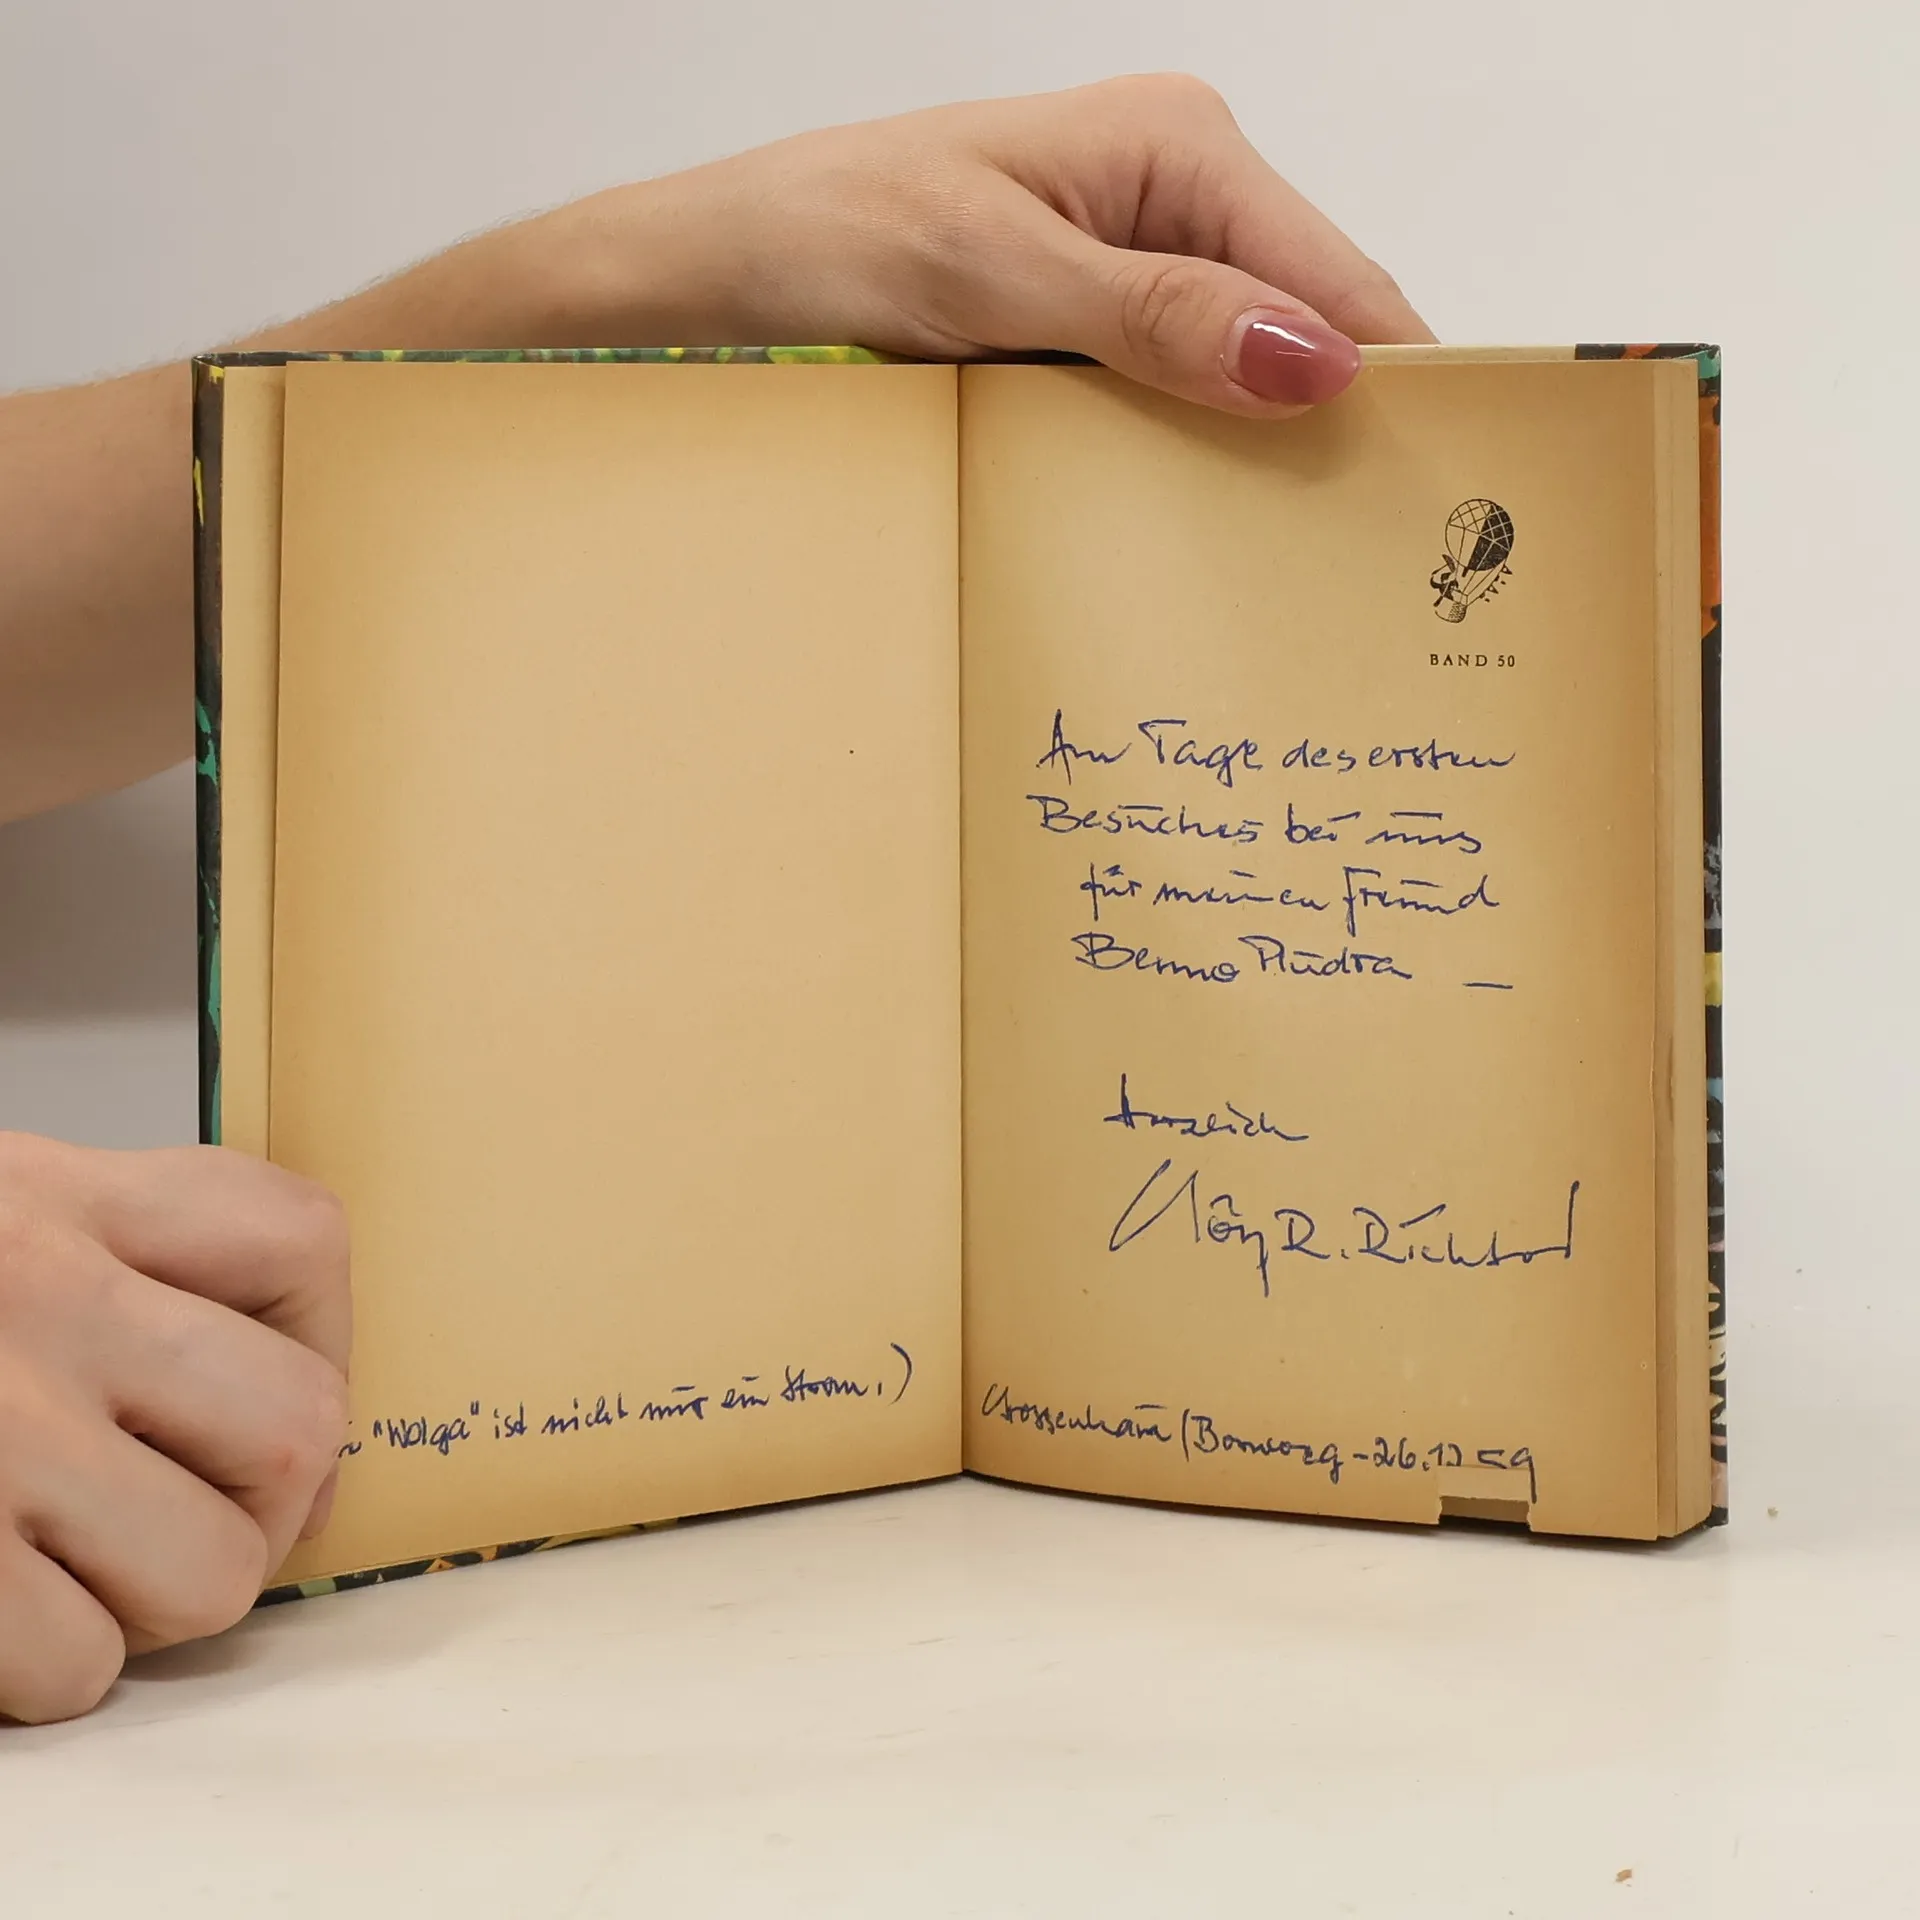 "Wolga" ist nicht nur ein Strom.)
BAND 50
Am Tage des ersten
Besuches bei uns
für meinen Freund
Benno Pludra —
Herzlich
Götz R. Richter
Grossenhain (Bonworg - 26.12 59